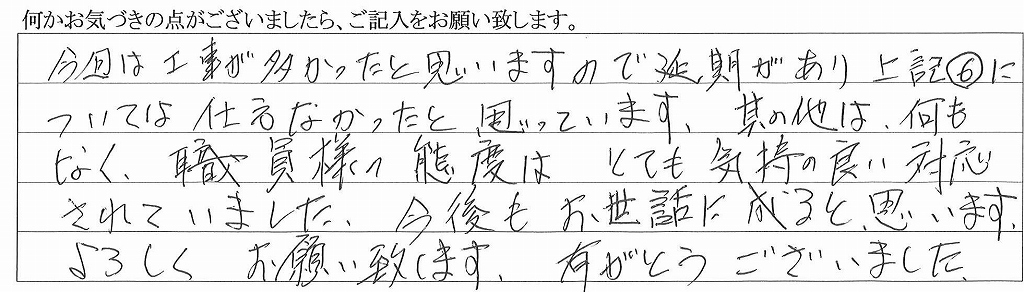 何かお気づきの点がございましたら、ご記入をお願い致します。
今回は工事が多かったと思いますので延期があり上記⑥に
ついては仕方なかったと思っています。其の他は、何も
なく、職員様の態度はとても気持の良い対応
されていました、今後もお世話に成ると思います。
よろしくお願い致します。有がとうございました。